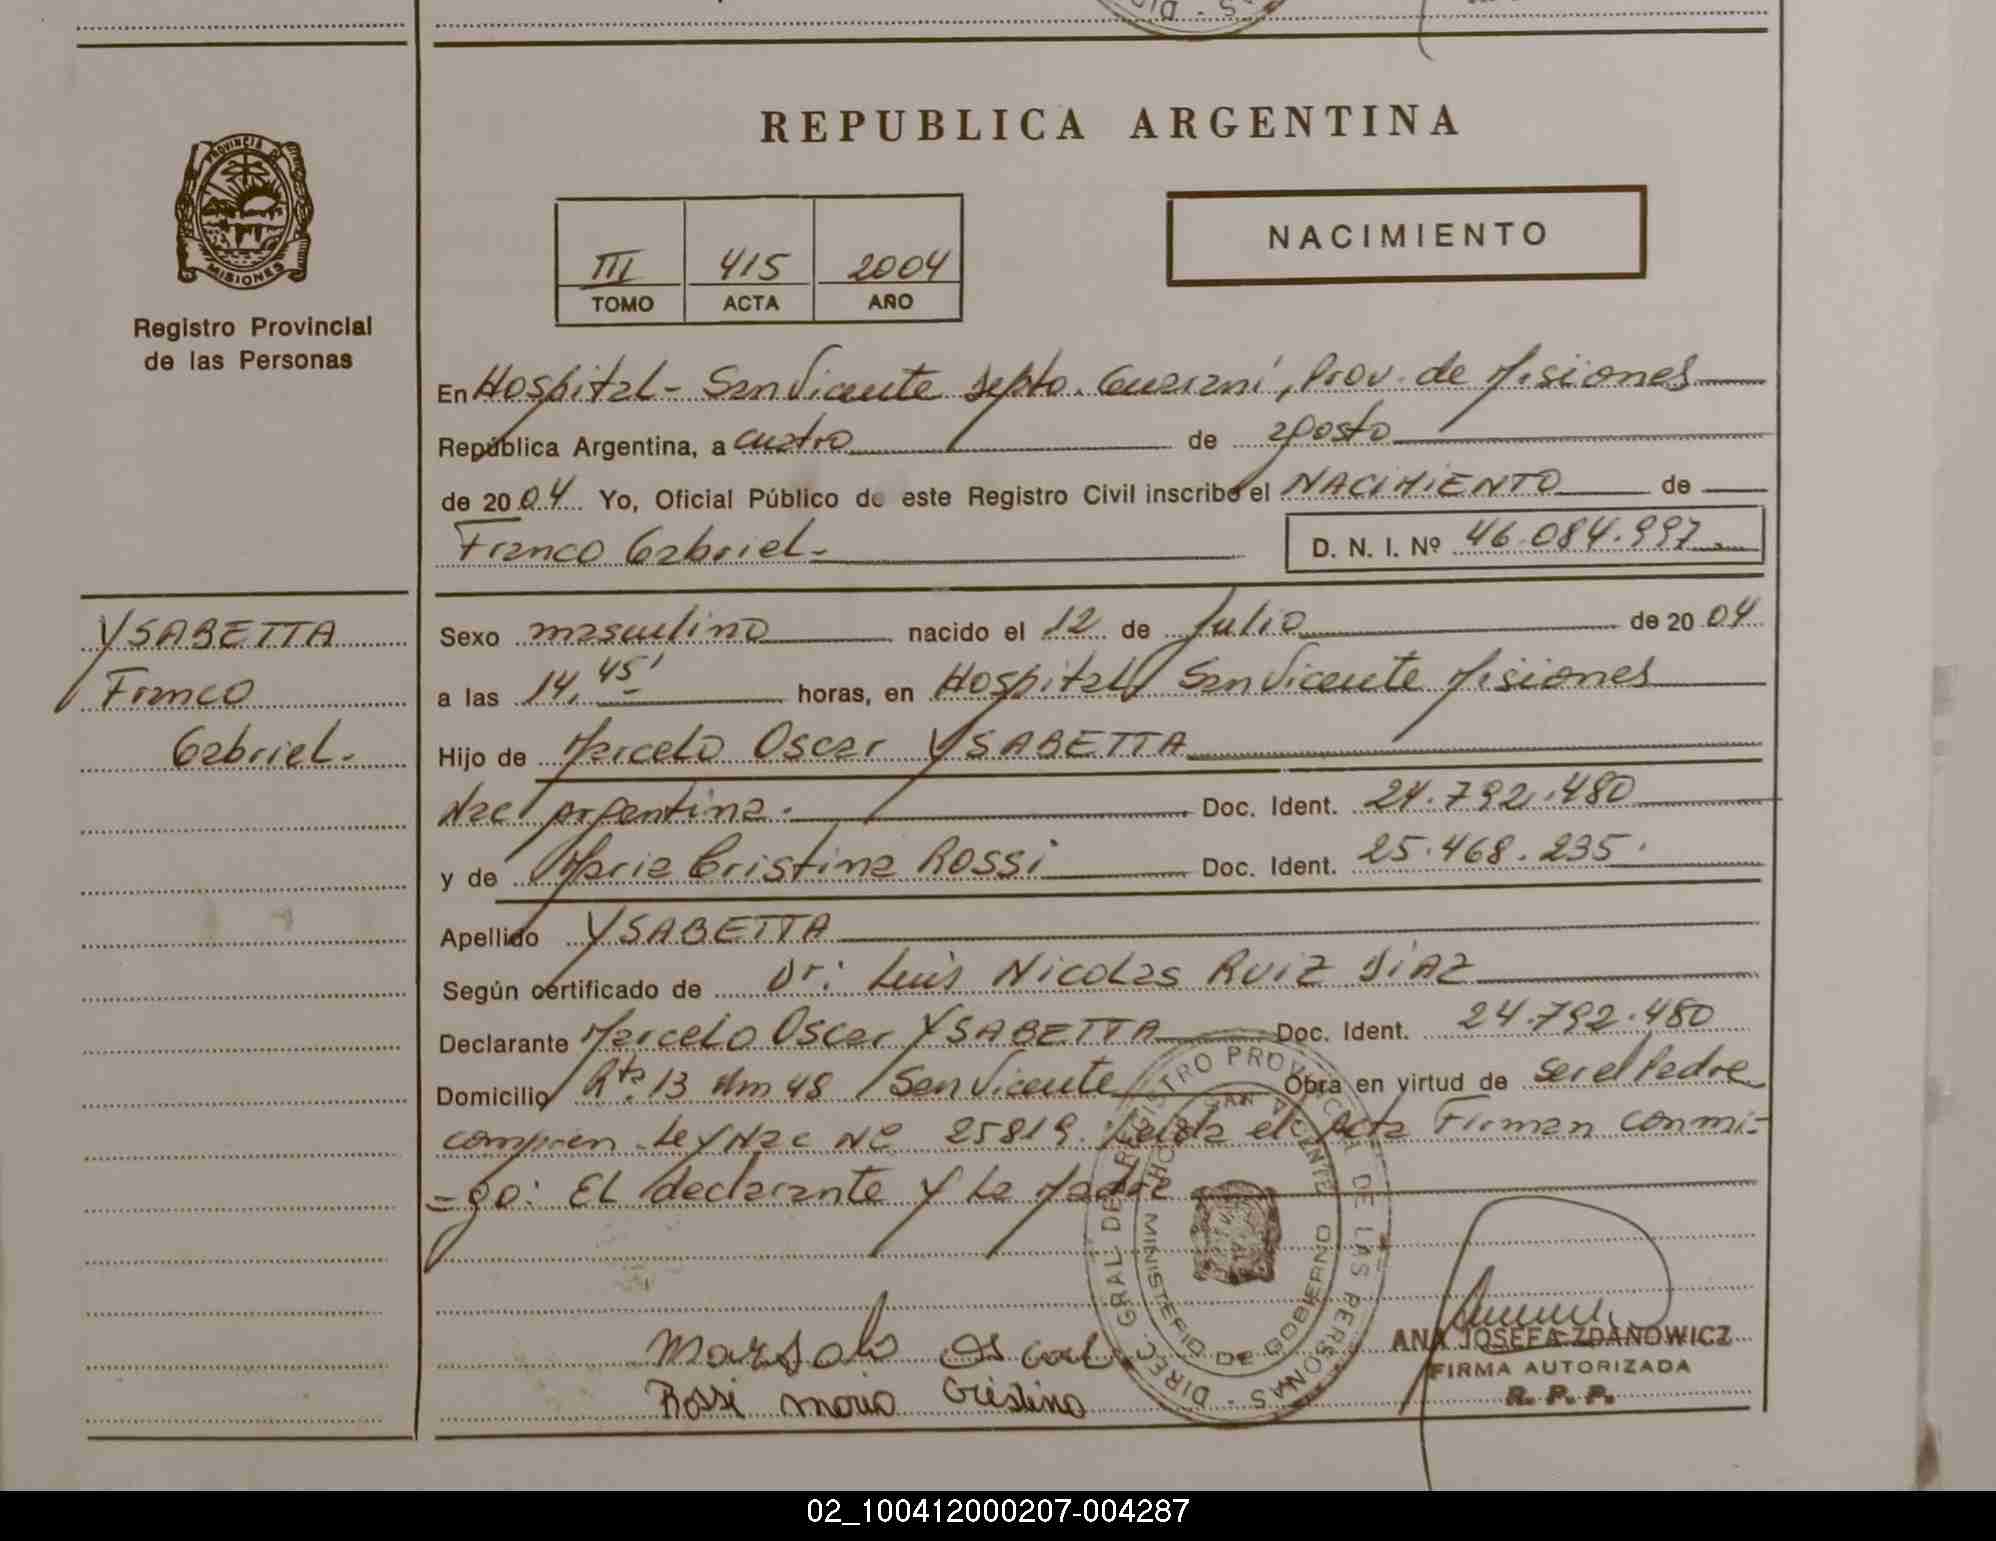 REPUBLICA ARGENTINA
PROVINCIA DE
MISIONES
Registro Provincial
de las Personas
III 415 2004
TOMO ACTA AÑO
NACIMIENTO
En Hospital - San Vicente Depto. Guarani, Prov. de Misiones
República Argentina, a cuatro de agosto
de 2004 Yo, Oficial Público de este Registro Civil inscribo el NACIMIENTO de
Franco Gabriel.-
D. N. I. Nº 46.084.997.-
YSABETTA
Franco
Gabriel.-
Sexo masculino nacido el 12 de Julio de 2004
a las 14,45' horas, en Hospital San Vicente Misiones
Hijo de Marcelo Oscar YSABETTA
Nac Argentina. Doc. Ident. 24.792.480
y de Maria Cristina ROSSI Doc. Ident. 25.468.235.
Apellido YSABETTA
Según certificado de Dr: Luis Nicolas RUIZ DIAZ
Declarante Marcelo Oscar YSABETTA Doc. Ident. 24.792.480
Domicilio Rta. 13 Km 48 San Vicente Obra en virtud de ser el Padre
Ley Nac Nº 25819. Leida el Acta Firman conmi-
-go: El declarante y La Madre
DIREC. GRAL DE REGISTRO PROVINCIAL DE LAS PERSONAS
MINISTERIO DE GOBIERNO
SAN VICENTE
Marsalo Oscar
Rossi Maria Cristina
ANA JOSEFA ZDANOWICZ
FIRMA AUTORIZADA
R. P. P.
02_100412000207-004287